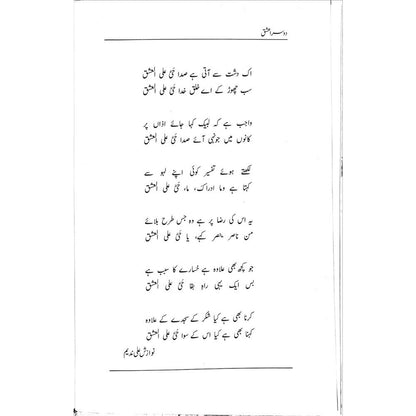 دوسرا عشق
اک دشت سے آتی ہے صدا حَیَّ علی العشق
سب چھوڑ کے اے خلق خدا حَیَّ علی العشق
واجب ہے کہ لبیک کہا جائے اذاں پر
کانوں میں جونہی آئے صدا حَیَّ علی العشق
لکھتے ہوئے تفسیر کوئی اپنے لہو سے
کہتا ہے وما ادراک، ما، حَیَّ علی العشق
یہ اس کی رضا پر ہے وہ جس طرح بلائے
من ناصر کہے، یا حَیَّ علی العشق
جو کچھ بھی علاوہ ہے خسارے کا سبب ہے
بس ایک یہی راہِ بقا حَیَّ علی العشق
کرنا بھی ہے کیا شکر کے سجدے کے علاوہ
کہنا بھی ہے کیا اس کے سوا حَیَّ علی العشق
نوازش علی ندیم